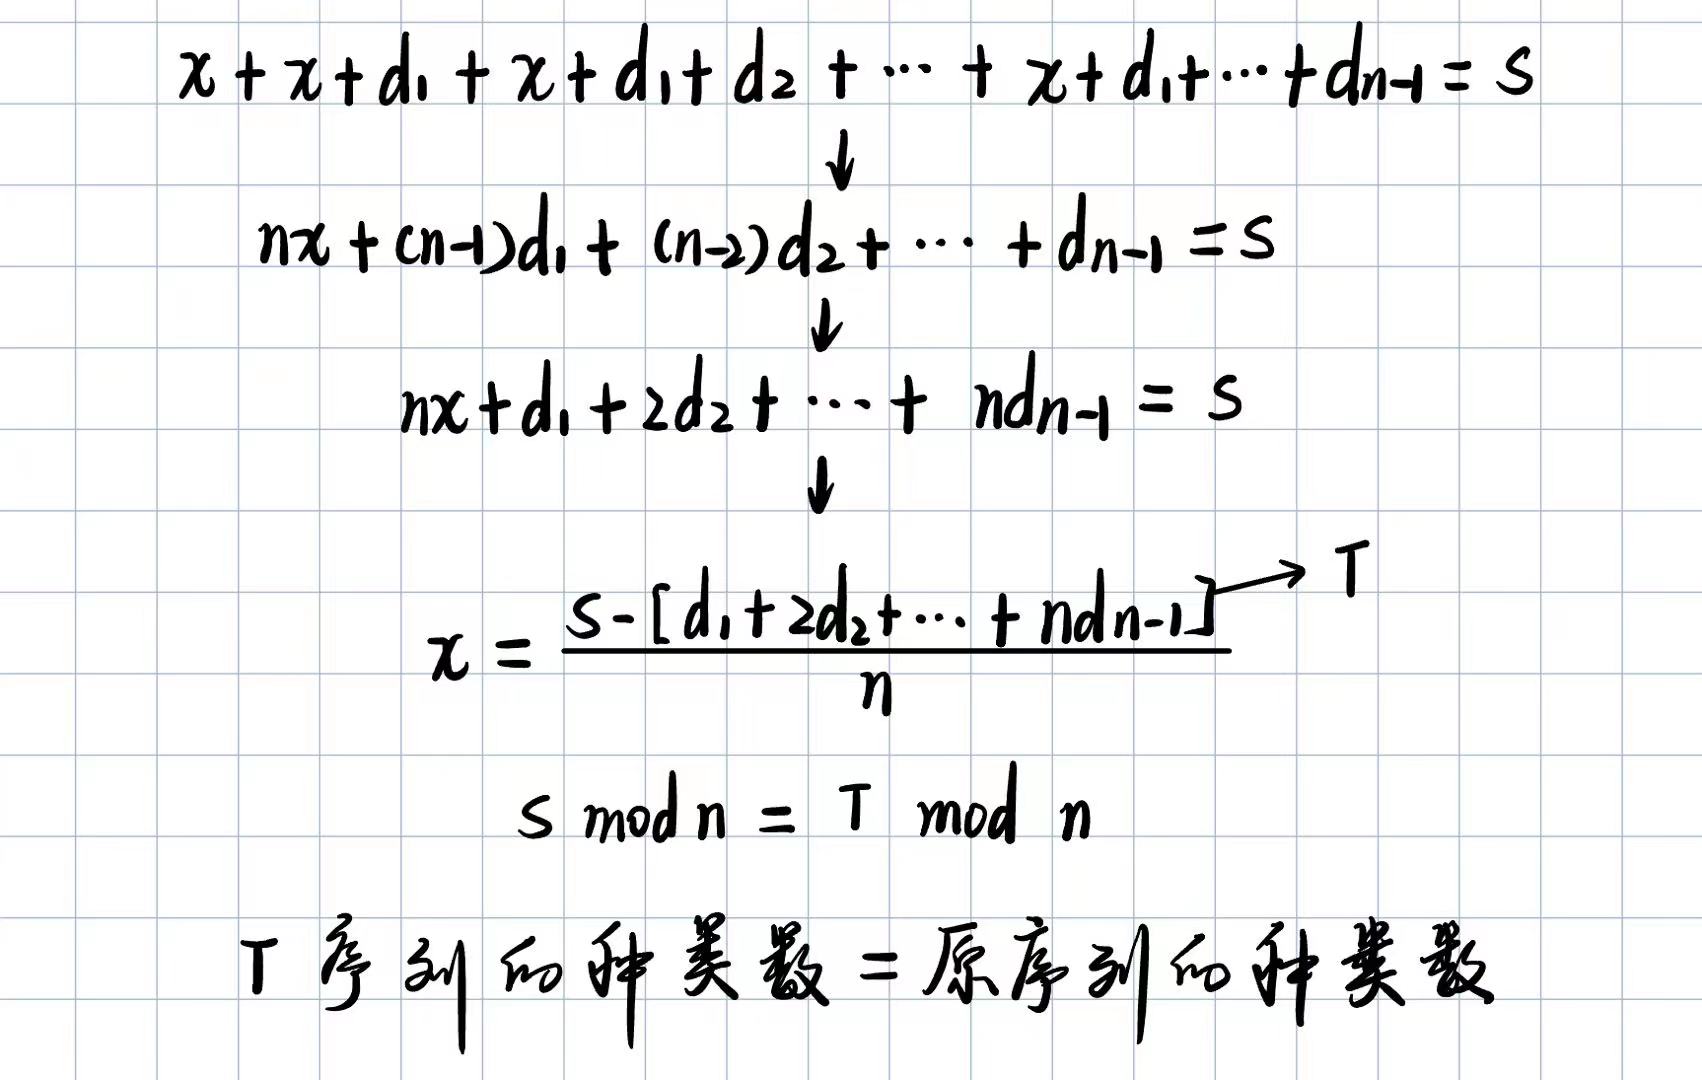 x + x + d₁ + x + d₁ + d₂ + ⋯ + x + d₁ + ⋯ + dₙ₋₁ = S
↓
nx + (n-1)d₁ + (n-2)d₂ + ⋯ + dₙ₋₁ = S
↓
nx + d₁ + 2d₂ + ⋯ + ndₙ₋₁ = S
↓
x = \frac{S - [d₁ + 2d₂ + ⋯ + ndₙ₋₁]}{n} → T
S mod n = T mod n
T 序列的种类数 = 原序列的种类数